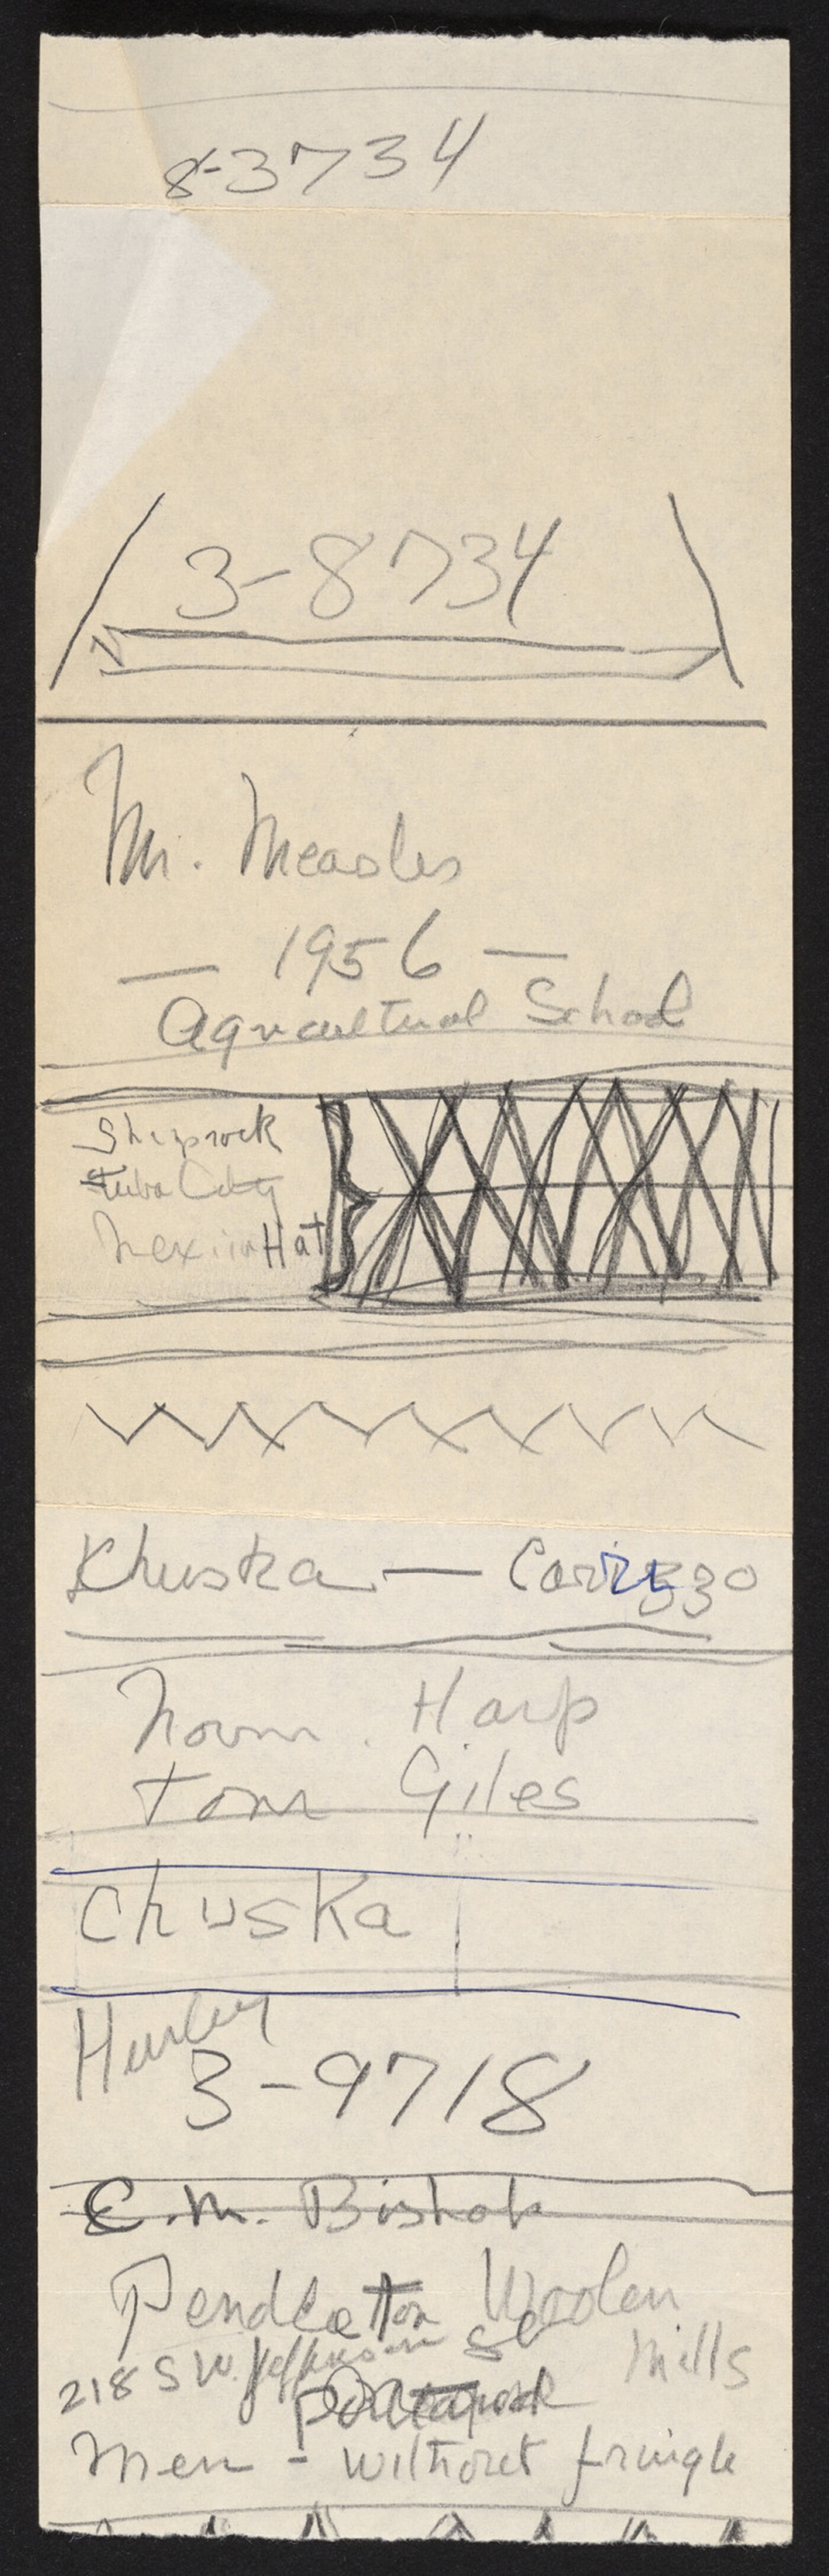 8-3734
3-8734
Mr. Measles
— 1956 —
Agricultural School
Shiprock
Tuba City
Mexican Hat
Khuska — Carrizzo
Norm. Harp
Tom Giles
Chuska
Hurley
3-9718
C.M. Bishop
Pendleton Woolen
Mills
218 S W. Jefferson St
Portland
Men - without fringe